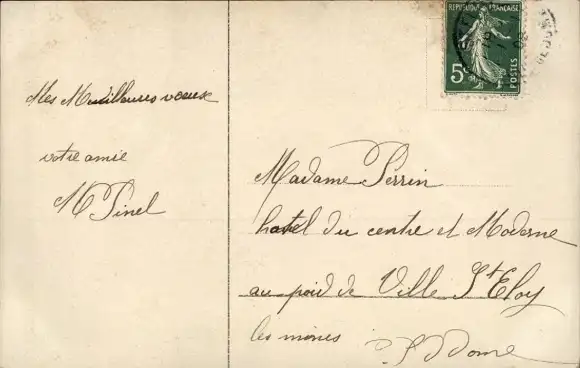 Mes Meilleures voeux
votre amie
M Pinel
REPUBLIQUE FRANÇAISE
5c
POSTES
Madame Perrin
hotel du centre et Moderne
au poid de Ville St Eloy
les mines P. Dome